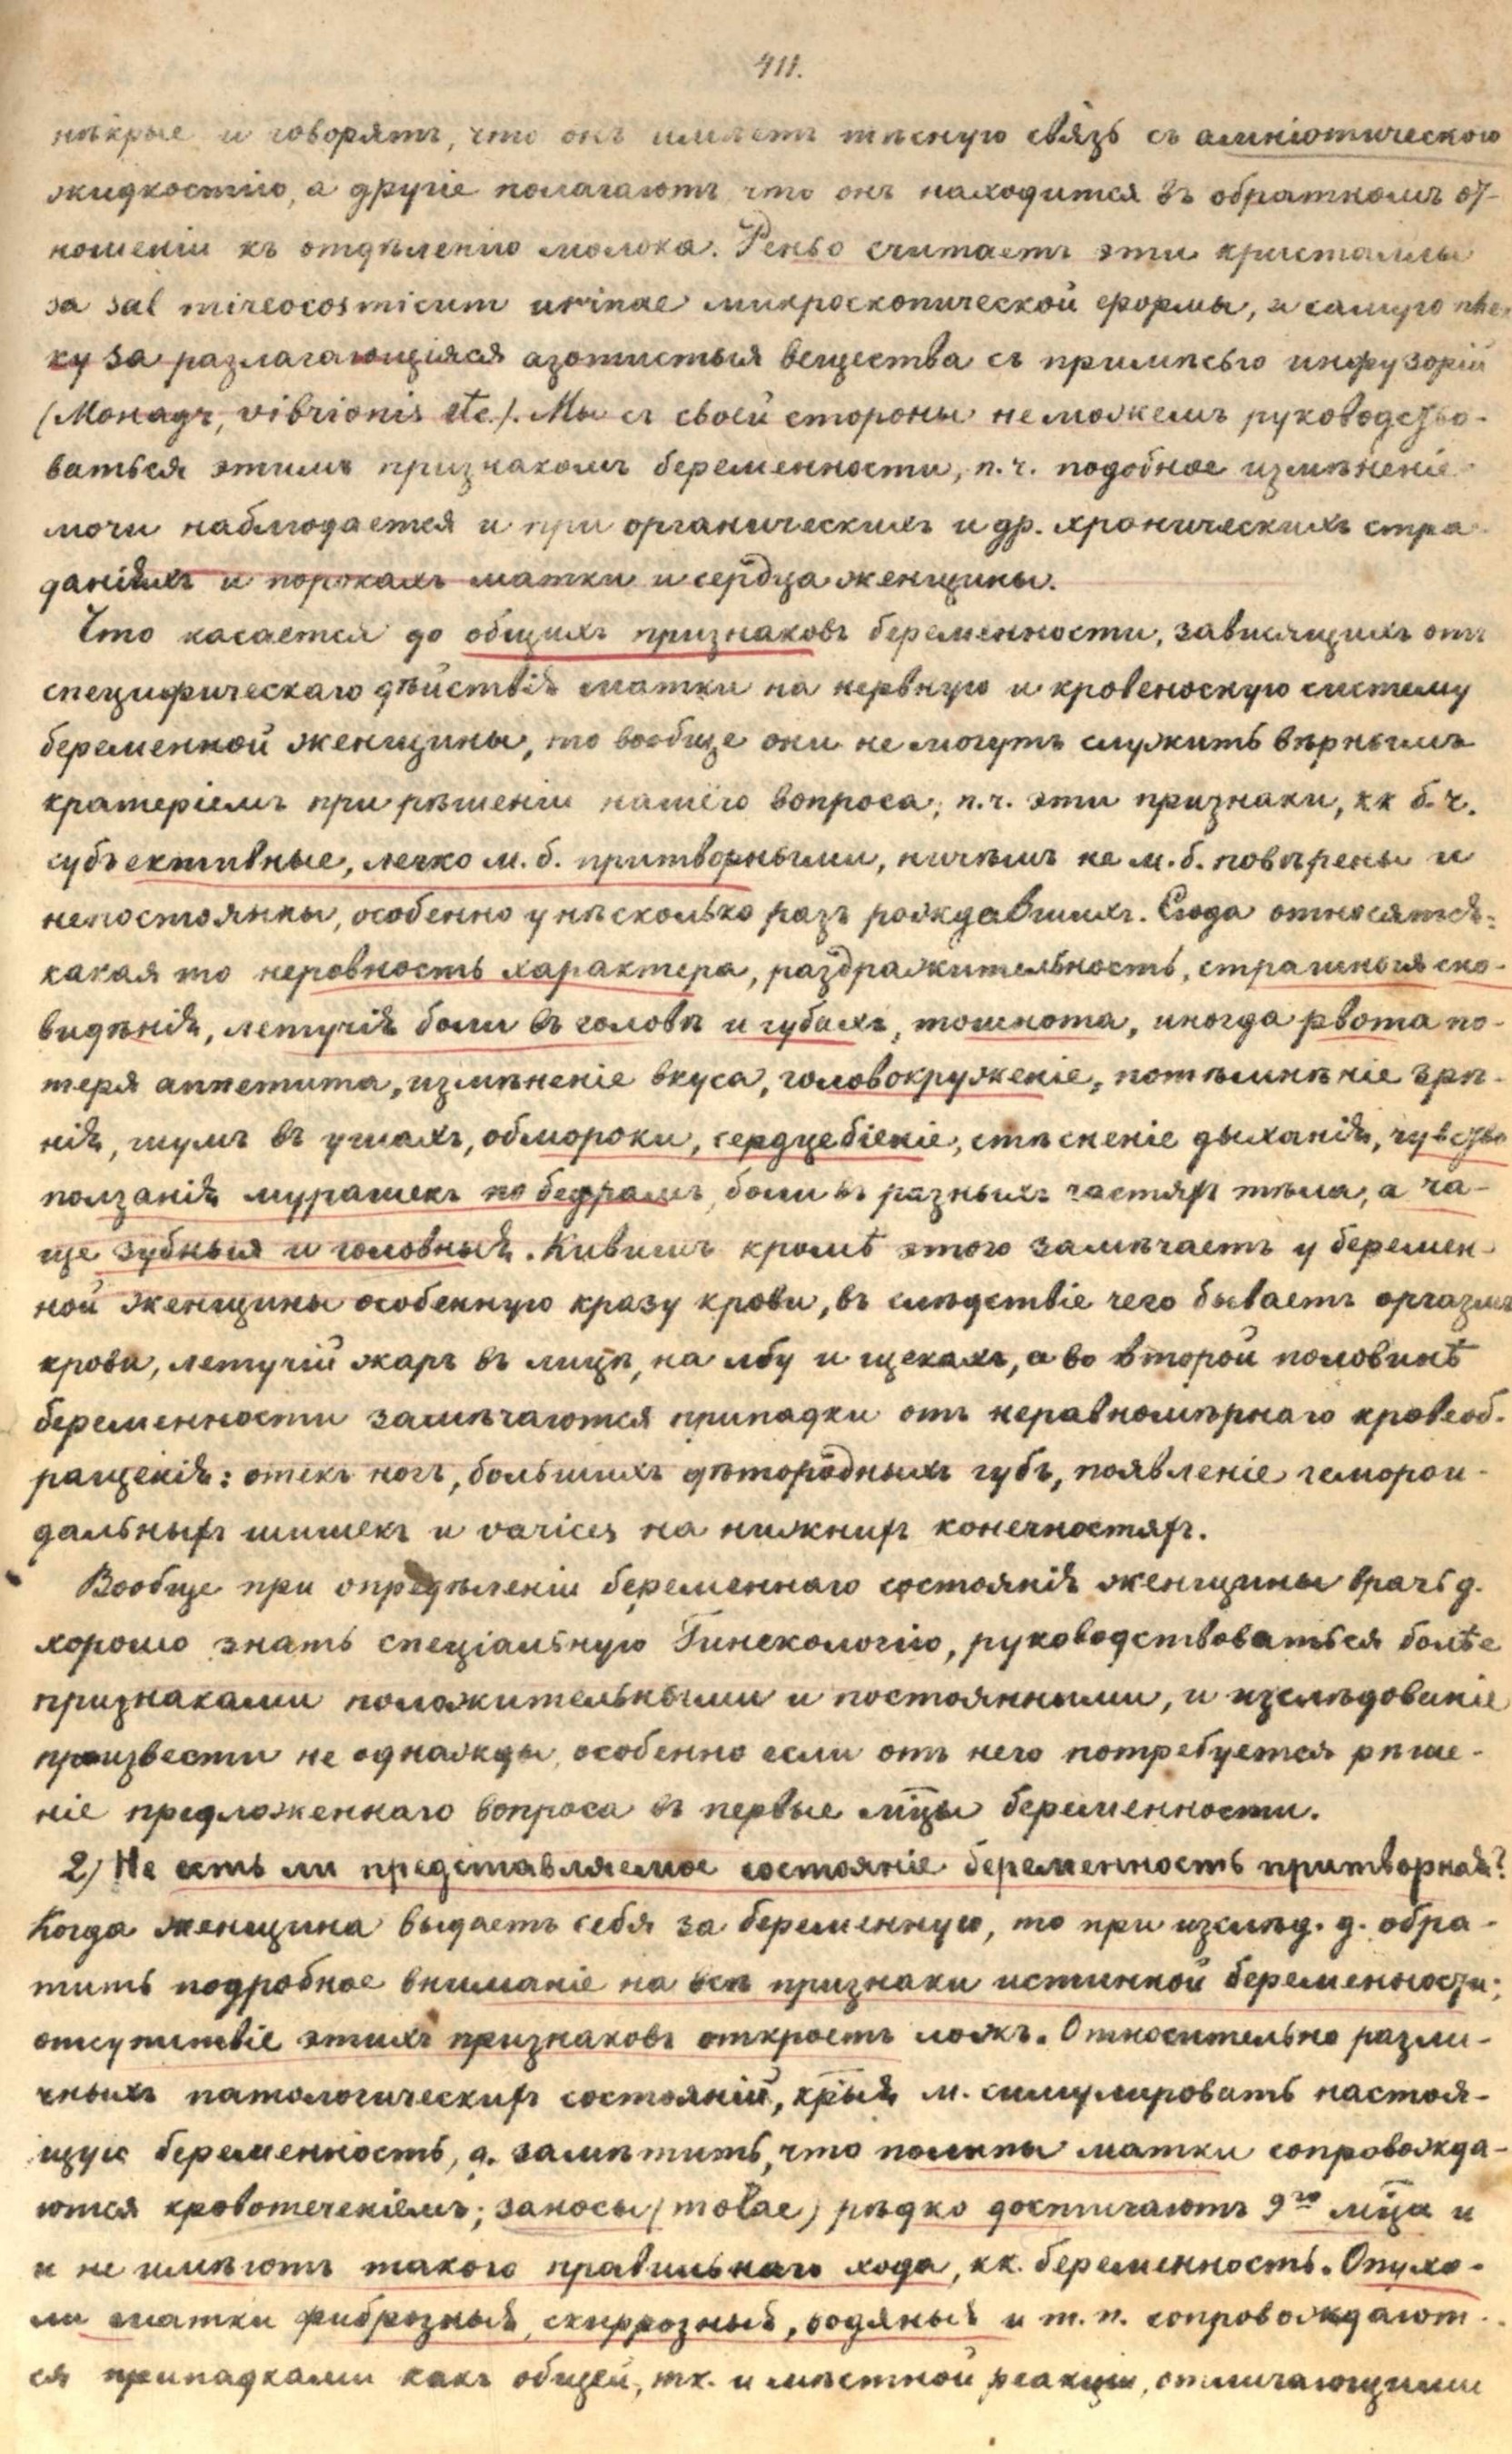 411.
нѣкрые и говорятъ, что онъ имѣетъ тѣсную связь съ амніотическою
жидкостію, а другіе полагаютъ что онъ находится въ обратномъ от-
ношеніи къ отдѣленію молока. Реньо считаетъ эти кристаллы
за sal mireocosmicum urinae микроскопической формы, а самую плен
ку за разлагающіяся азотистыя вещества съ примѣсью инфузорій
(Монадъ, vibrionis etc.). Мы съ своей стороны не можемъ руководство-
ваться этимъ признакомъ беременности, п. ч. подобное измѣненіе
мочи наблюдается и при органическихъ и др. хроническихъ стра-
даніяхъ и порокахъ матки и сердца женщины.
Что касается до общихъ признаковъ беременности, зависящихъ отъ
специфическаго дѣйствія матки на нервную и кровеносную систему
беременной женщины, то вообще они не могутъ служить вѣрнымъ
кратеріемъ при рѣшеніи нашего вопроса, п. ч. эти признаки, кк б. ч.
субъективные, легко м. б. притворными, ничѣмъ не м. б. повѣрены и
непостоянны, особенно у нѣсколько разъ рождавшихъ. Сюда относятся:
какая то неровность характера, раздражительность, страшныя сно-
видѣнія, летучія боли въ головѣ и зубахъ, тошнота, иногда рвота по-
теря аппетита, измѣненіе вкуса, головокруженіе, потемнѣніе зрѣ-
нія, шумъ въ ушахъ, обмороки, сердцебіеніе, стѣсненіе дыханія, чувство
ползанія мурашекъ по бедрамъ, боли въ разныхъ частяхъ тѣла, а ча-
ще зубныя и головныя. Кивишъ кромѣ этого замѣчаетъ у беремен-
ной женщины особенную кразу крови, въ слѣдствіе чего бываетъ оргазмъ
крови, летучій жаръ въ лицѣ, на лбу и щекахъ, а во второй половинѣ
беременности замѣчаются припадки отъ неравномѣрнаго кровеоб-
ращенія: отекъ ногъ, большихъ дѣтородныхъ губъ, появленіе геморои-
дальныхъ шишекъ и varices на нижнихъ конечностяхъ.
Вообще при опредѣленіи беременнаго состоянія женщины врачъ д.
хорошо знать спеціальную Гинекологію, руководствоваться болѣе
признаками положительными и постоянными, и изслѣдованіе
произвести не однажды, особенно если отъ него потребуется рѣше-
ніе предложеннаго вопроса въ первые мцы беременности.
2) Не есть ли представляемое состояніе беременность притворная?
Когда женщина выдаетъ себя за беременную, то при изслѣд. д. обра-
тить подробное вниманіе на всѣ признаки истинной беременности;
отсутствіе этихъ признаковъ откроетъ ложь. Относительно разли-
чныхъ патологическихъ состояній, крыя м. симулировать настоя-
щую беременность, д. замѣтить, что полипы матки сопровожда-
ются кровотеченіемъ; заносы (molae) рѣдко достигаютъ 9го мца и
и не имѣютъ такого правильнаго хода, кк. беременность. Опухо-
ли матки фиброзныя, скиррозныя, водяныя и т. п. сопровождают-
ся припадками какъ общей, тк. и мѣстной реакціи, отличающими